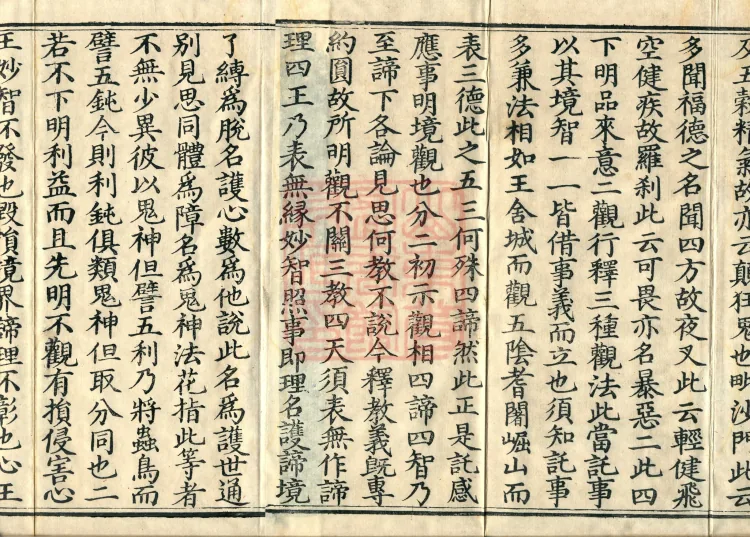 及五穀精氣故亦云顛狂鬼也毗沙門此云
多聞福德之名聞四方故夜叉此云輕健飛
空健疾故羅刹此云可畏亦名暴惡二此四
下明品來意二觀行釋三種觀法此當託事
以其境智一一皆借事義而立也須知託事
多兼法相如王舍城而觀五陰耆闍崛山而
表三德此之五三何殊四諦然此正是託感
應事明境觀也分二初示觀相四諦四智乃
至諦下各論見思何教不說今釋教義旣專
約圓故所明觀不關三教四天須表無作諦
理四王乃表無緣妙智照事即理名護諦境
了縛爲脫名護心數爲他說此名爲護世通
別見思同體爲障名爲鬼神法花指此等者
不無少異彼以鬼神但譬五利乃將蟲鳥而
譬五鈍今則利鈍俱類鬼神但取分同也二
若不下明利益而且先明不觀有損侵害心
王妙智不發也毀損境界諦理不彰也心王